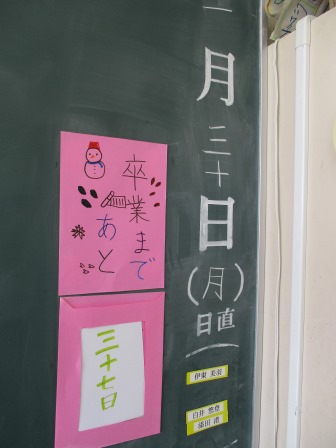 一月三十日(月)
日直
伊東 美羽
白井 悠登
卒業まで
あと
三十七日